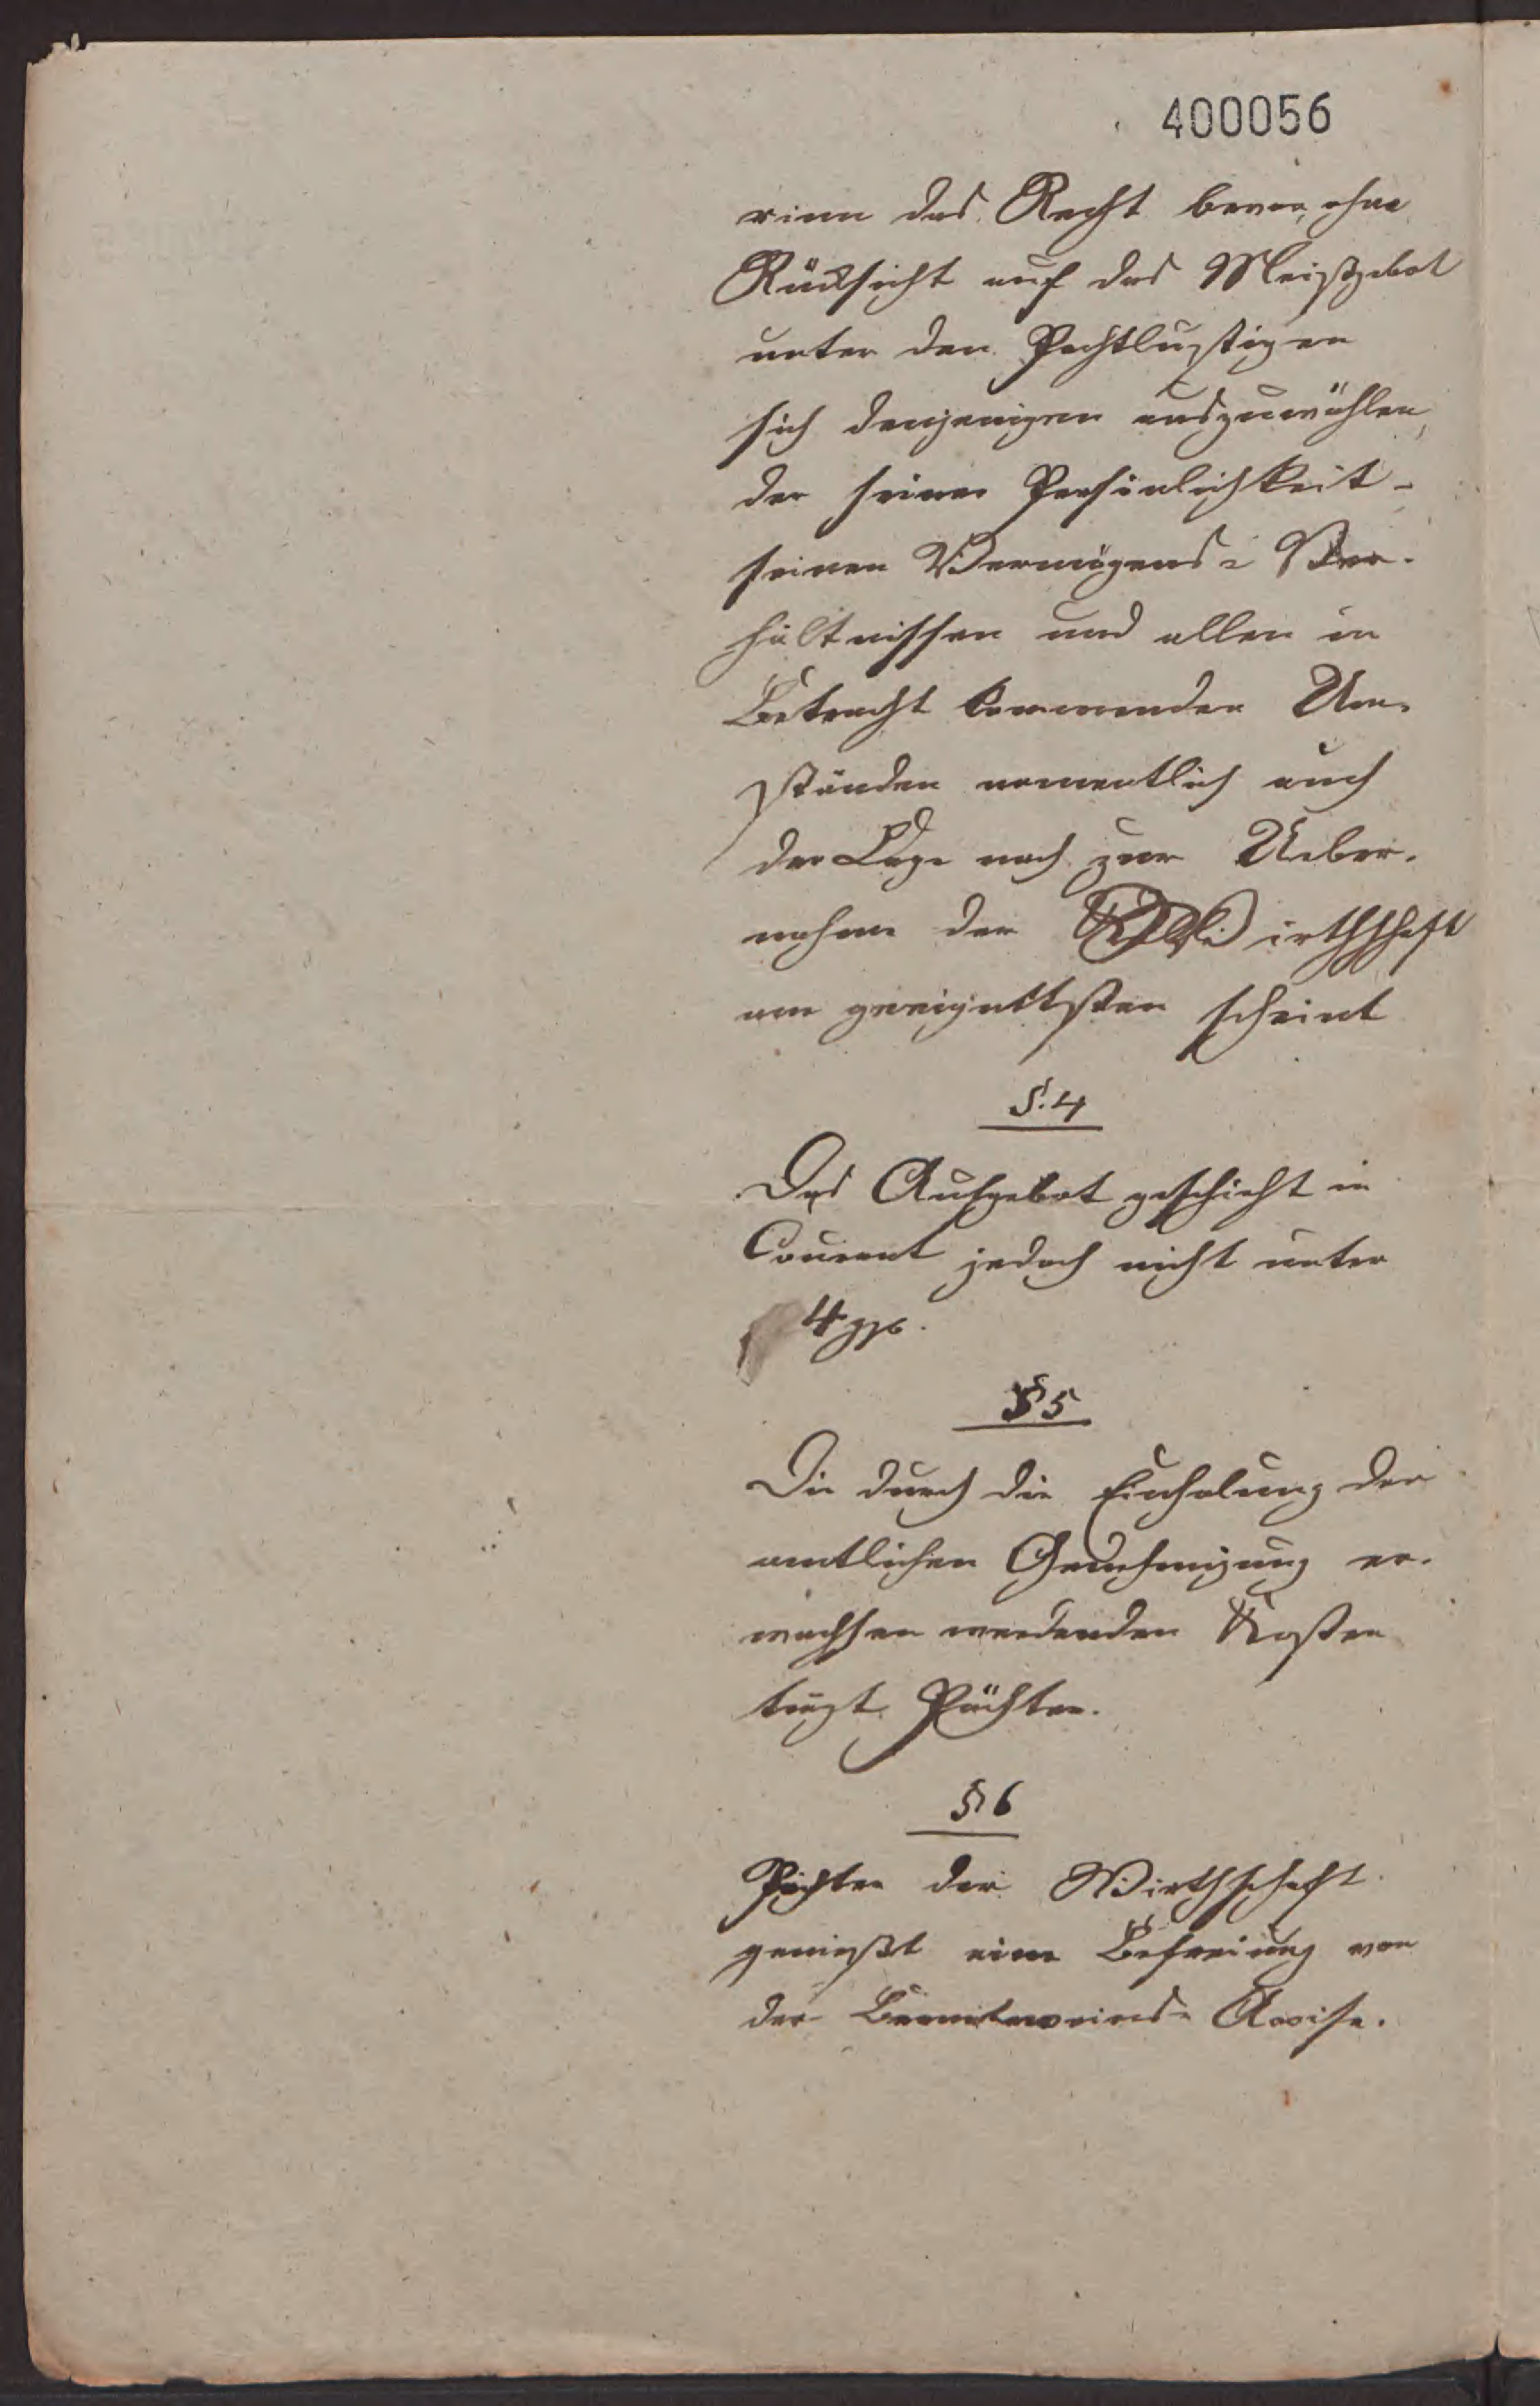 400056
rinn das Recht bevor, ohne
Rücksicht auf das Meistgebot
unter den Pachtlustigen
sich denjenigen auszuwählen,
der seiner Persönlichkeit-
seinen Vermögens- Ver-
hältnissen und allen in
Betracht kommenden Um-
ständen namentlich auch
der Lage nach zur Ueber-
nahme der Wirthschaft
am geeignettsten scheint
§. 4
Das Aufgebot geschieht in
Courant jedoch nicht unter
4 ggr.
§ 5
Die durch die Einholung der
amtlichen Genehmigung er-
wachsen werdenden Kosten
trägt Pächter.
§ 6
Pächter der Wirthschaft
genießt eine Befreiung von
der Branntweins- Accise.